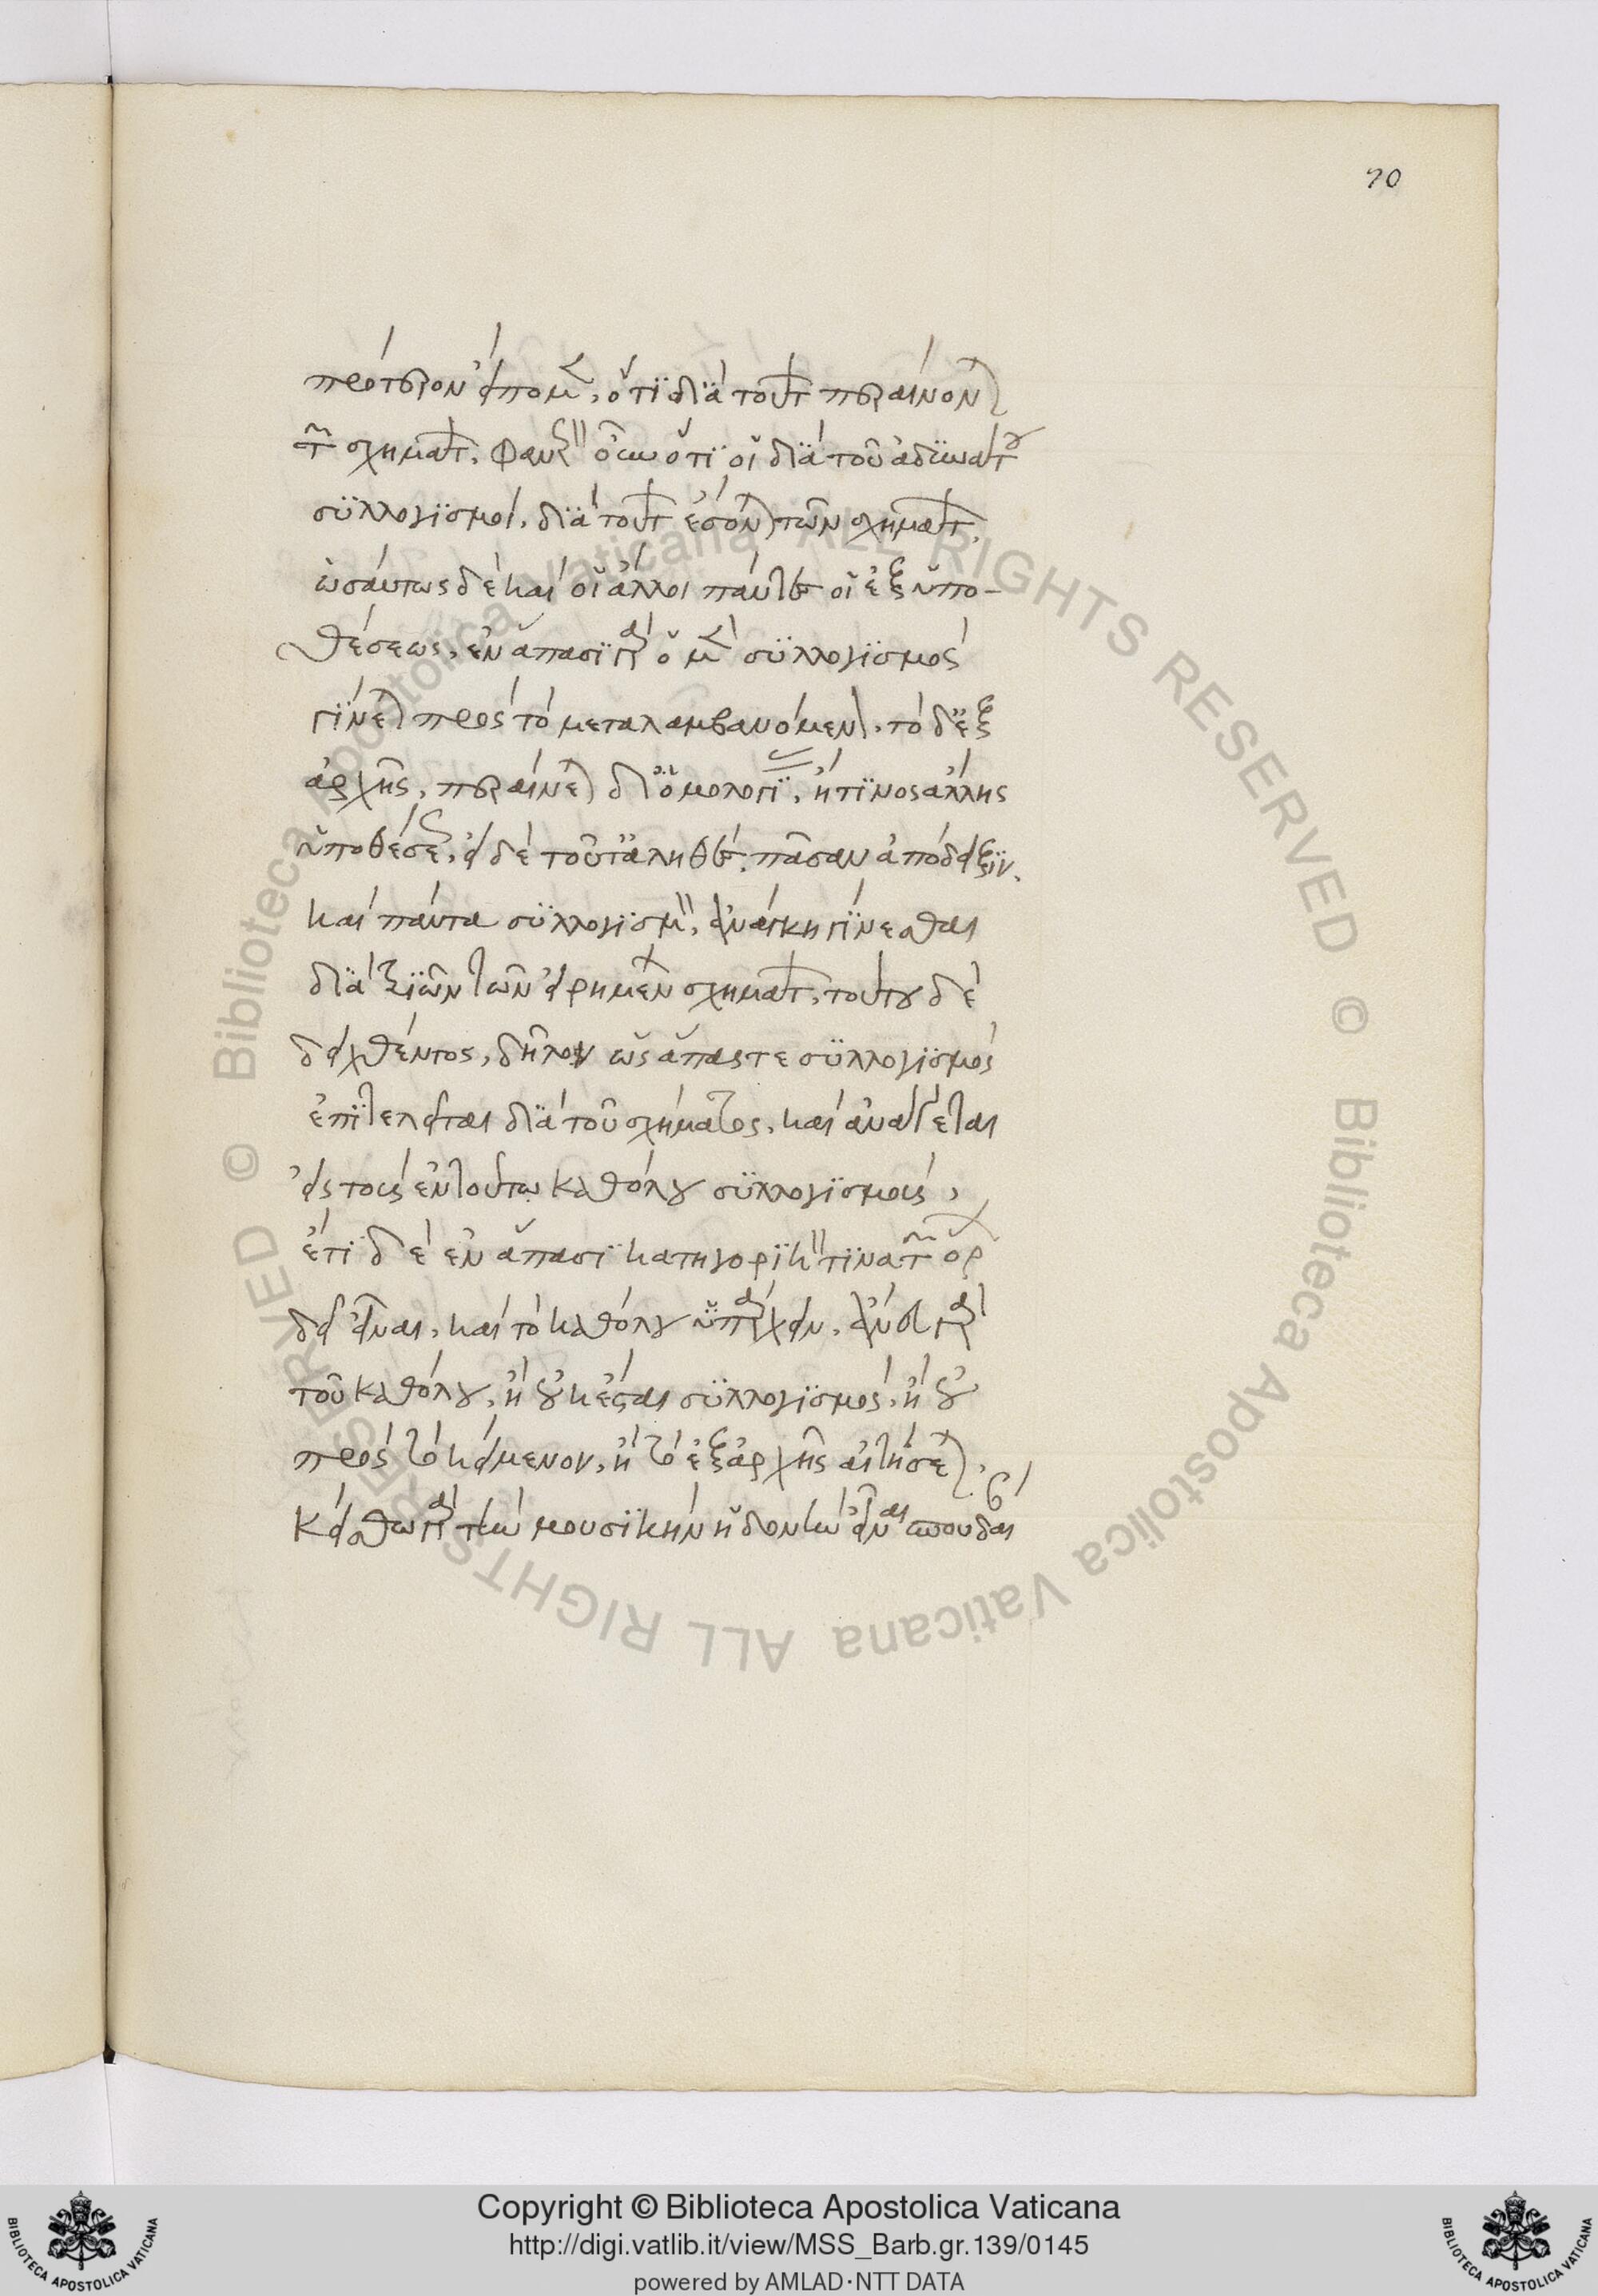 70
πρότερον εἴπομεν, ὅτι διὰ τούτων περαίνονται
τῶν σχημάτων. φανερὸν οὖν ὅτι οἱ διὰ τοῦ ἀδυνάτου
συλλογισμοὶ, διὰ τούτων ἔσονται τῶν σχημάτων.
ὡσαύτως δὲ καὶ οἱ ἄλλοι πάντες οἱ ἐξ ὑπο-
θέσεως, ἐν ἅπασι γὰρ ὁ μὲν συλλογισμὸς
γίνεται πρὸς τὸ μεταλαμβανόμενον, τὸ δ' ἐξ
ἀρχῆς, περαίνεται δι' ὁμολογίας, ἤ τινος ἄλλης
ὑποθέσεως, εἰ δὲ τοῦτ' ἀληθὲς, πᾶσαν ἀπόδειξιν.
καὶ πάντα συλλογισμὸν, ἀνάγκη γίνεσθαι
διὰ τριῶν τῶν εἰρημένων σχημάτων, τούτου δὲ
δειχθέντος, δῆλον ὡς ἅπας τε συλλογισμὸς
ἐπιτελεῖται διὰ τοῦ σχήματος, καὶ ἀνάγεται
εἰς τοὺς ἐν τούτω καθόλου συλλογισμοὺς,
ἔτι δὲ ἐν ἅπασι κατηγορικὸν τινα τῶν ὅρων
δεῖ εἶναι, καὶ τὸ καθόλου ὑπάρχειν, ἄνευ γὰρ
τοῦ καθόλου, ἢ οὐκ ἔσται συλλογισμὸς, ἢ οὐ
πρὸς τὸ κείμενον, ἢ τὸ ἐξ ἀρχῆς αἰτήσεται.
κείσθω γὰρ τὴν μουσικὴν ἡδονὴν εἶναι σπουδαί
Copyright © Biblioteca Apostolica Vaticana
http://digi.vatlib.it/view/MSS_Barb.gr.139/0145
powered by AMLAD·NTT DATA
BIBLIOTECA APOSTOLICA VATICANA
BIBLIOTECA APOSTOLICA VATICANA
© Biblioteca Apostolica Vaticana ALL RIGHTS RESERVED
© Biblioteca Apostolica Vaticana ALL RIGHTS RESERVED